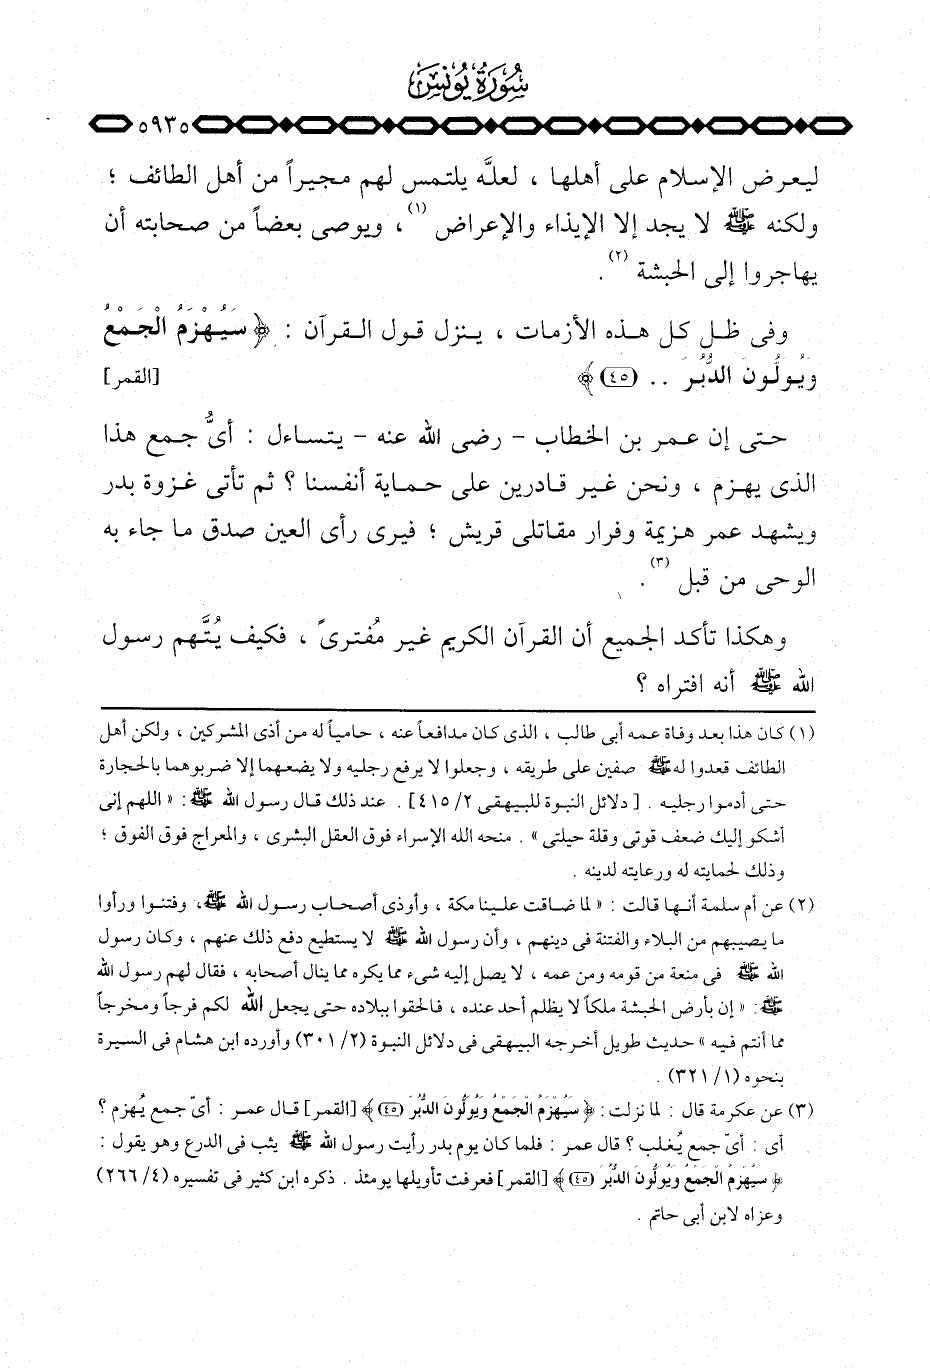 سُورَةُ يُونُسَ
٥٩٣٥
ليعرض الإسلام على أهلها ، لعلَّه يلتمس لهم مجيراً من أهل الطائف ؛
ولكنه ﷺ لا يجد إلا الإيذاء والإعراض (١) ، ويوصى بعضاً من صحابته أن
يهاجروا إلى الحبشة (٢) .
وفى ظل كل هذه الأزمات ، ينزل قول القرآن : ﴿ سَيُهْزَمُ الْجَمْعُ
وَيُوَلُّونَ الدُّبُرَ .. (٤٥) ﴾ [القمر]
حتى إن عمر بن الخطاب - رضى الله عنه - يتساءل : أىُّ جمع هذا
الذى يهزم ، ونحن غير قادرين على حماية أنفسنا ؟ ثم تأتى غزوة بدر
ويشهد عمر هزيمة وفرار مقاتلى قريش ؛ فيرى رأى العين صدق ما جاء به
الوحى من قبل (٣) .
وهكذا تأكد الجميع أن القرآن الكريم غير مُفترىً ، فكيف يُتَّهم رسول
الله ﷺ أنه افتراه ؟
(١) كان هذا بعد وفاة عمه أبى طالب ، الذى كان مدافعاً عنه ، حامياً له من أذى المشركين ، ولكن أهل
الطائف قعدوا له ﷺ صفين على طريقه ، وجعلوا لا يرفع رجليه ولا يضعهما إلا ضربوهما بالحجارة
حتى أدموا رجليه . [ دلائل النبوة للبيهقى ٢/ ٤١٥] . عند ذلك قال رسول الله ﷺ : « اللهم إنى
أشكو إليك ضعف قوتى وقلة حيلتى » . منحه الله الإسراء فوق العقل البشرى ، والمعراج فوق الفوق ؛
وذلك لحمايته له ورعايته لدينه .
(٢) عن أم سلمة أنها قالت : « لما ضاقت علينا مكة ، وأوذى أصحاب رسول الله ﷺ ، وفتنوا ورأوا
ما يصيبهم من البلاء والفتنة فى دينهم ، وأن رسول الله ﷺ لا يستطيع دفع ذلك عنهم ، وكان رسول
الله ﷺ فى منعة من قومه ومن عمه ، لا يصل إليه شىء مما يكره مما ينال أصحابه ، فقال لهم رسول الله
ﷺ : « إن بأرض الحبشة ملكاً لا يظلم أحد عنده ، فالحقوا ببلاده حتى يجعل الله لكم فرجاً ومخرجاً
مما أنتم فيه » حديث طويل أخرجه البيهقى فى دلائل النبوة (٢/ ٣٠١) وأورده ابن هشام فى السيرة
بنحوه (١/ ٣٢١) .
(٣) عن عكرمة قال : لما نزلت : ﴿ سَيُهْزَمُ الْجَمْعُ وَيُوَلُّونَ الدُّبُرَ (٤٥) ﴾ [القمر] قال عمر : أىّ جمع يُهزم ؟
أى : أىّ جمع يُغلب ؟ قال عمر : فلما كان يوم بدر رأيت رسول الله ﷺ يثب فى الدرع وهو يقول :
﴿ سَيُهْزَمُ الْجَمْعُ وَيُوَلُّونَ الدُّبُرَ (٤٥) ﴾ [القمر] فعرفت تأويلها يومئذ . ذكره ابن كثير فى تفسيره (٤/ ٢٦٦)
وعزاه لابن أبى حاتم .